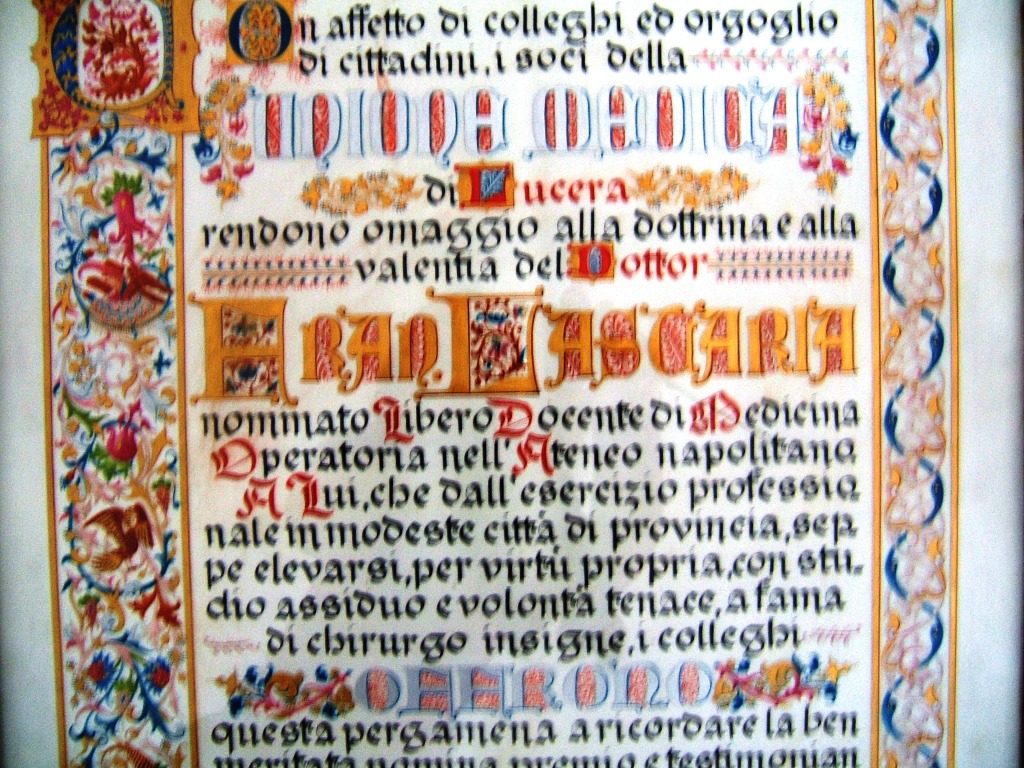 Con affetto di colleghi ed orgoglio
di cittadini, i soci della
UNIONE MEDICA
di Lucera
rendono omaggio alla dottrina e alla
valentia del Dottor
FRAN. LASTARIA
nominato Libero Docente di Medicina
Operatoria nell' Ateneo napolitano
A Lui, che dall'esercizio professio
nale in modeste città di provincia, sep
pe elevarsi, per virtù propria, con stu-
dio assiduo e volontà tenace, a fama
di chirurgo insigne, i colleghi
OFFRONO
questa pergamena a ricordare la ben
meritata nomina premio e testimonian